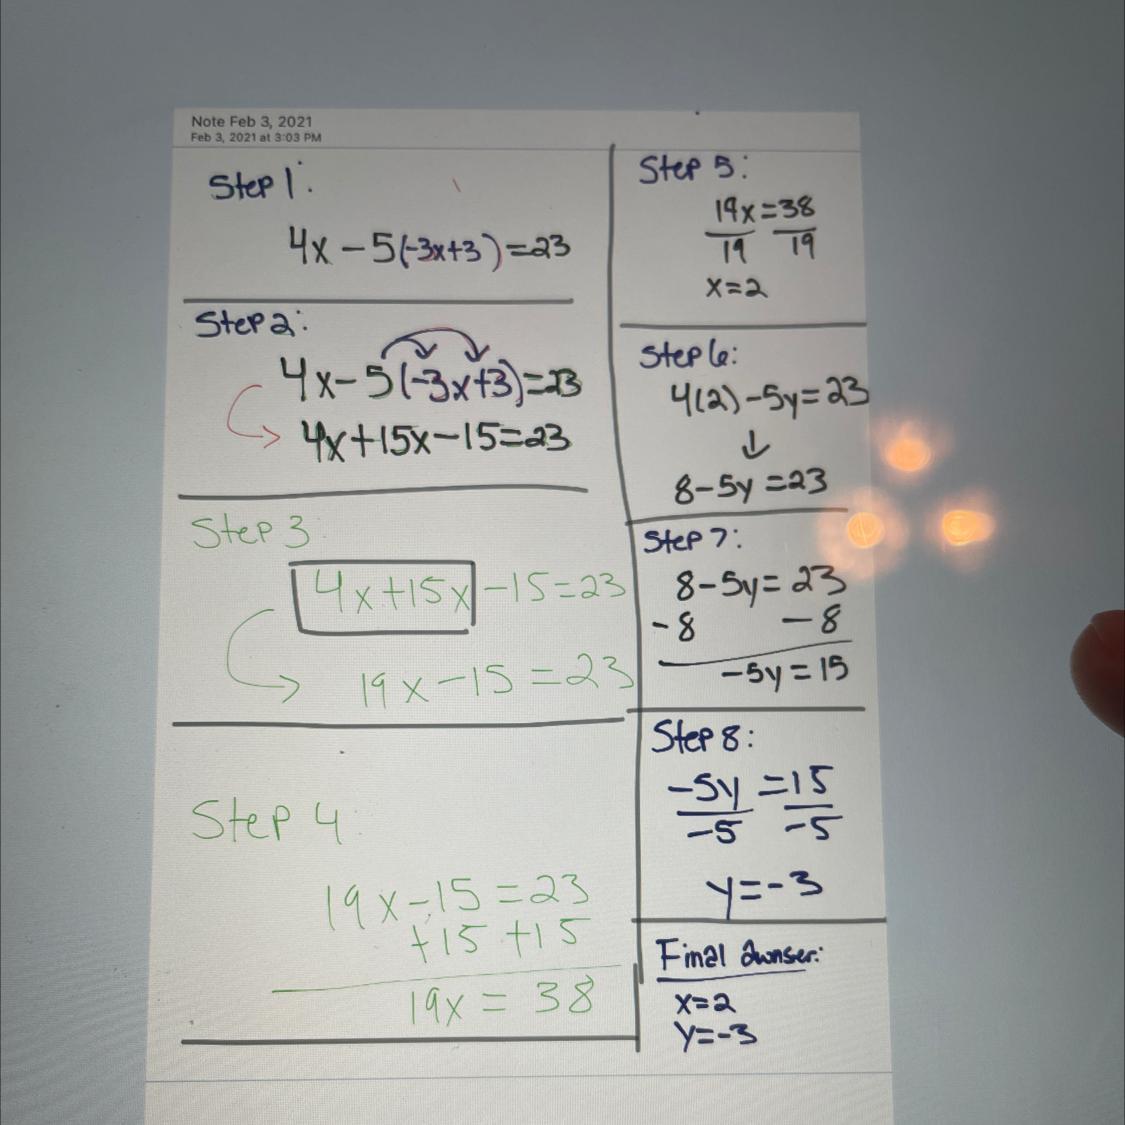 Note Feb 3, 2021
Feb 3, 2021 at 3:03 PM
Step 1:
4x-5(-3x+3)=23
Step 2:
4x-5(-3x+3)=23
4x+15x-15=23
Step 3
4x+15x-15=23
19x-15=23
Step 4
19x-15=23
+15 +15
19x = 38
Step 5:
19x=38
19 19
x=2
Step 6:
4(2)-5y=23
↓
8-5y=23
Step 7:
8-5y=23
-8 -8
-5y=15
Step 8:
-5y=15
-5 -5
y=-3
Final Awnser:
x=2
y=-3